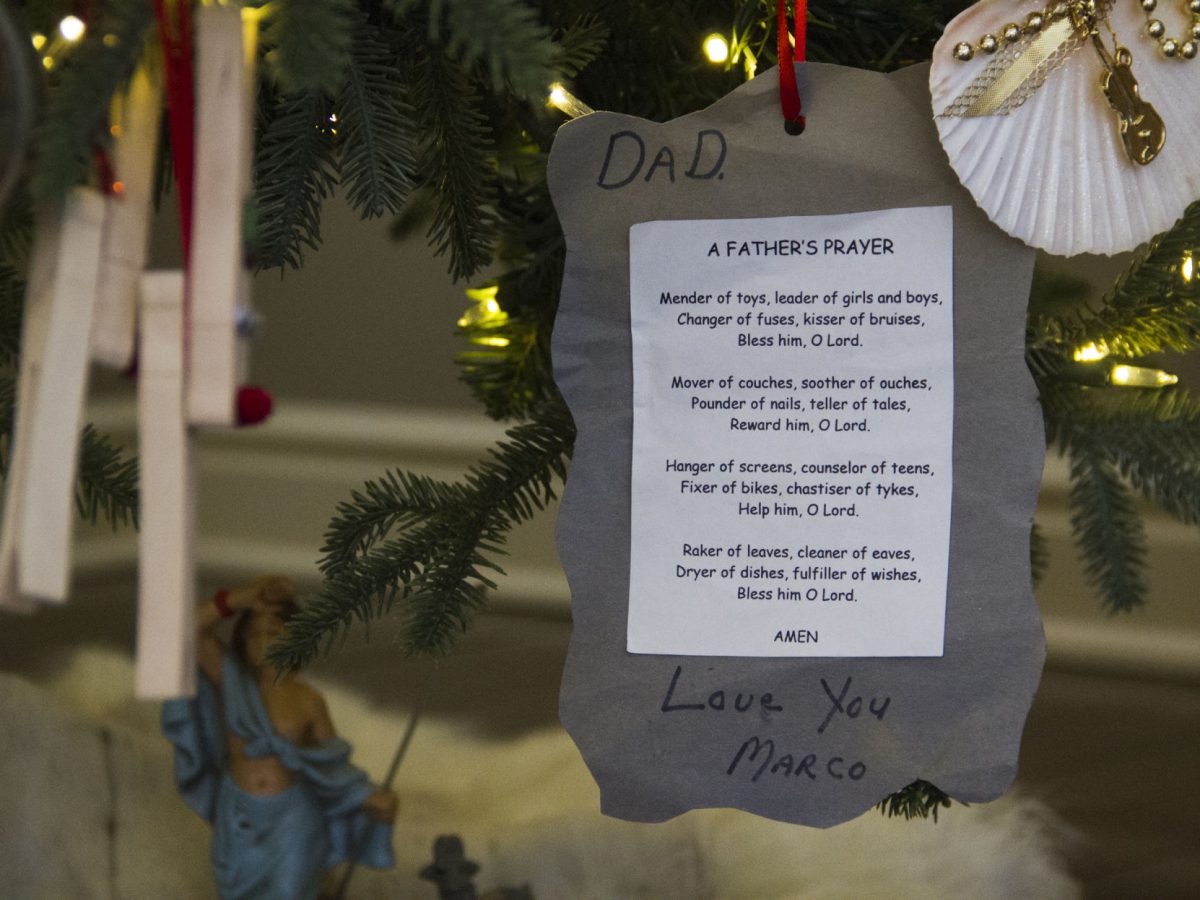 DAD.
A FATHER'S PRAYER
Mender of toys, leader of girls and boys,
Changer of fuses, kisser of bruises,
Bless him, O Lord.
Mover of couches, soother of ouches,
Pounder of nails, teller of tales,
Reward him, O Lord.
Hanger of screens, counselor of teens,
Fixer of bikes, chastiser of tykes,
Help him, O Lord.
Raker of leaves, cleaner of eaves,
Dryer of dishes, fulfiller of wishes,
Bless him O Lord.
AMEN
Love You
MARCO